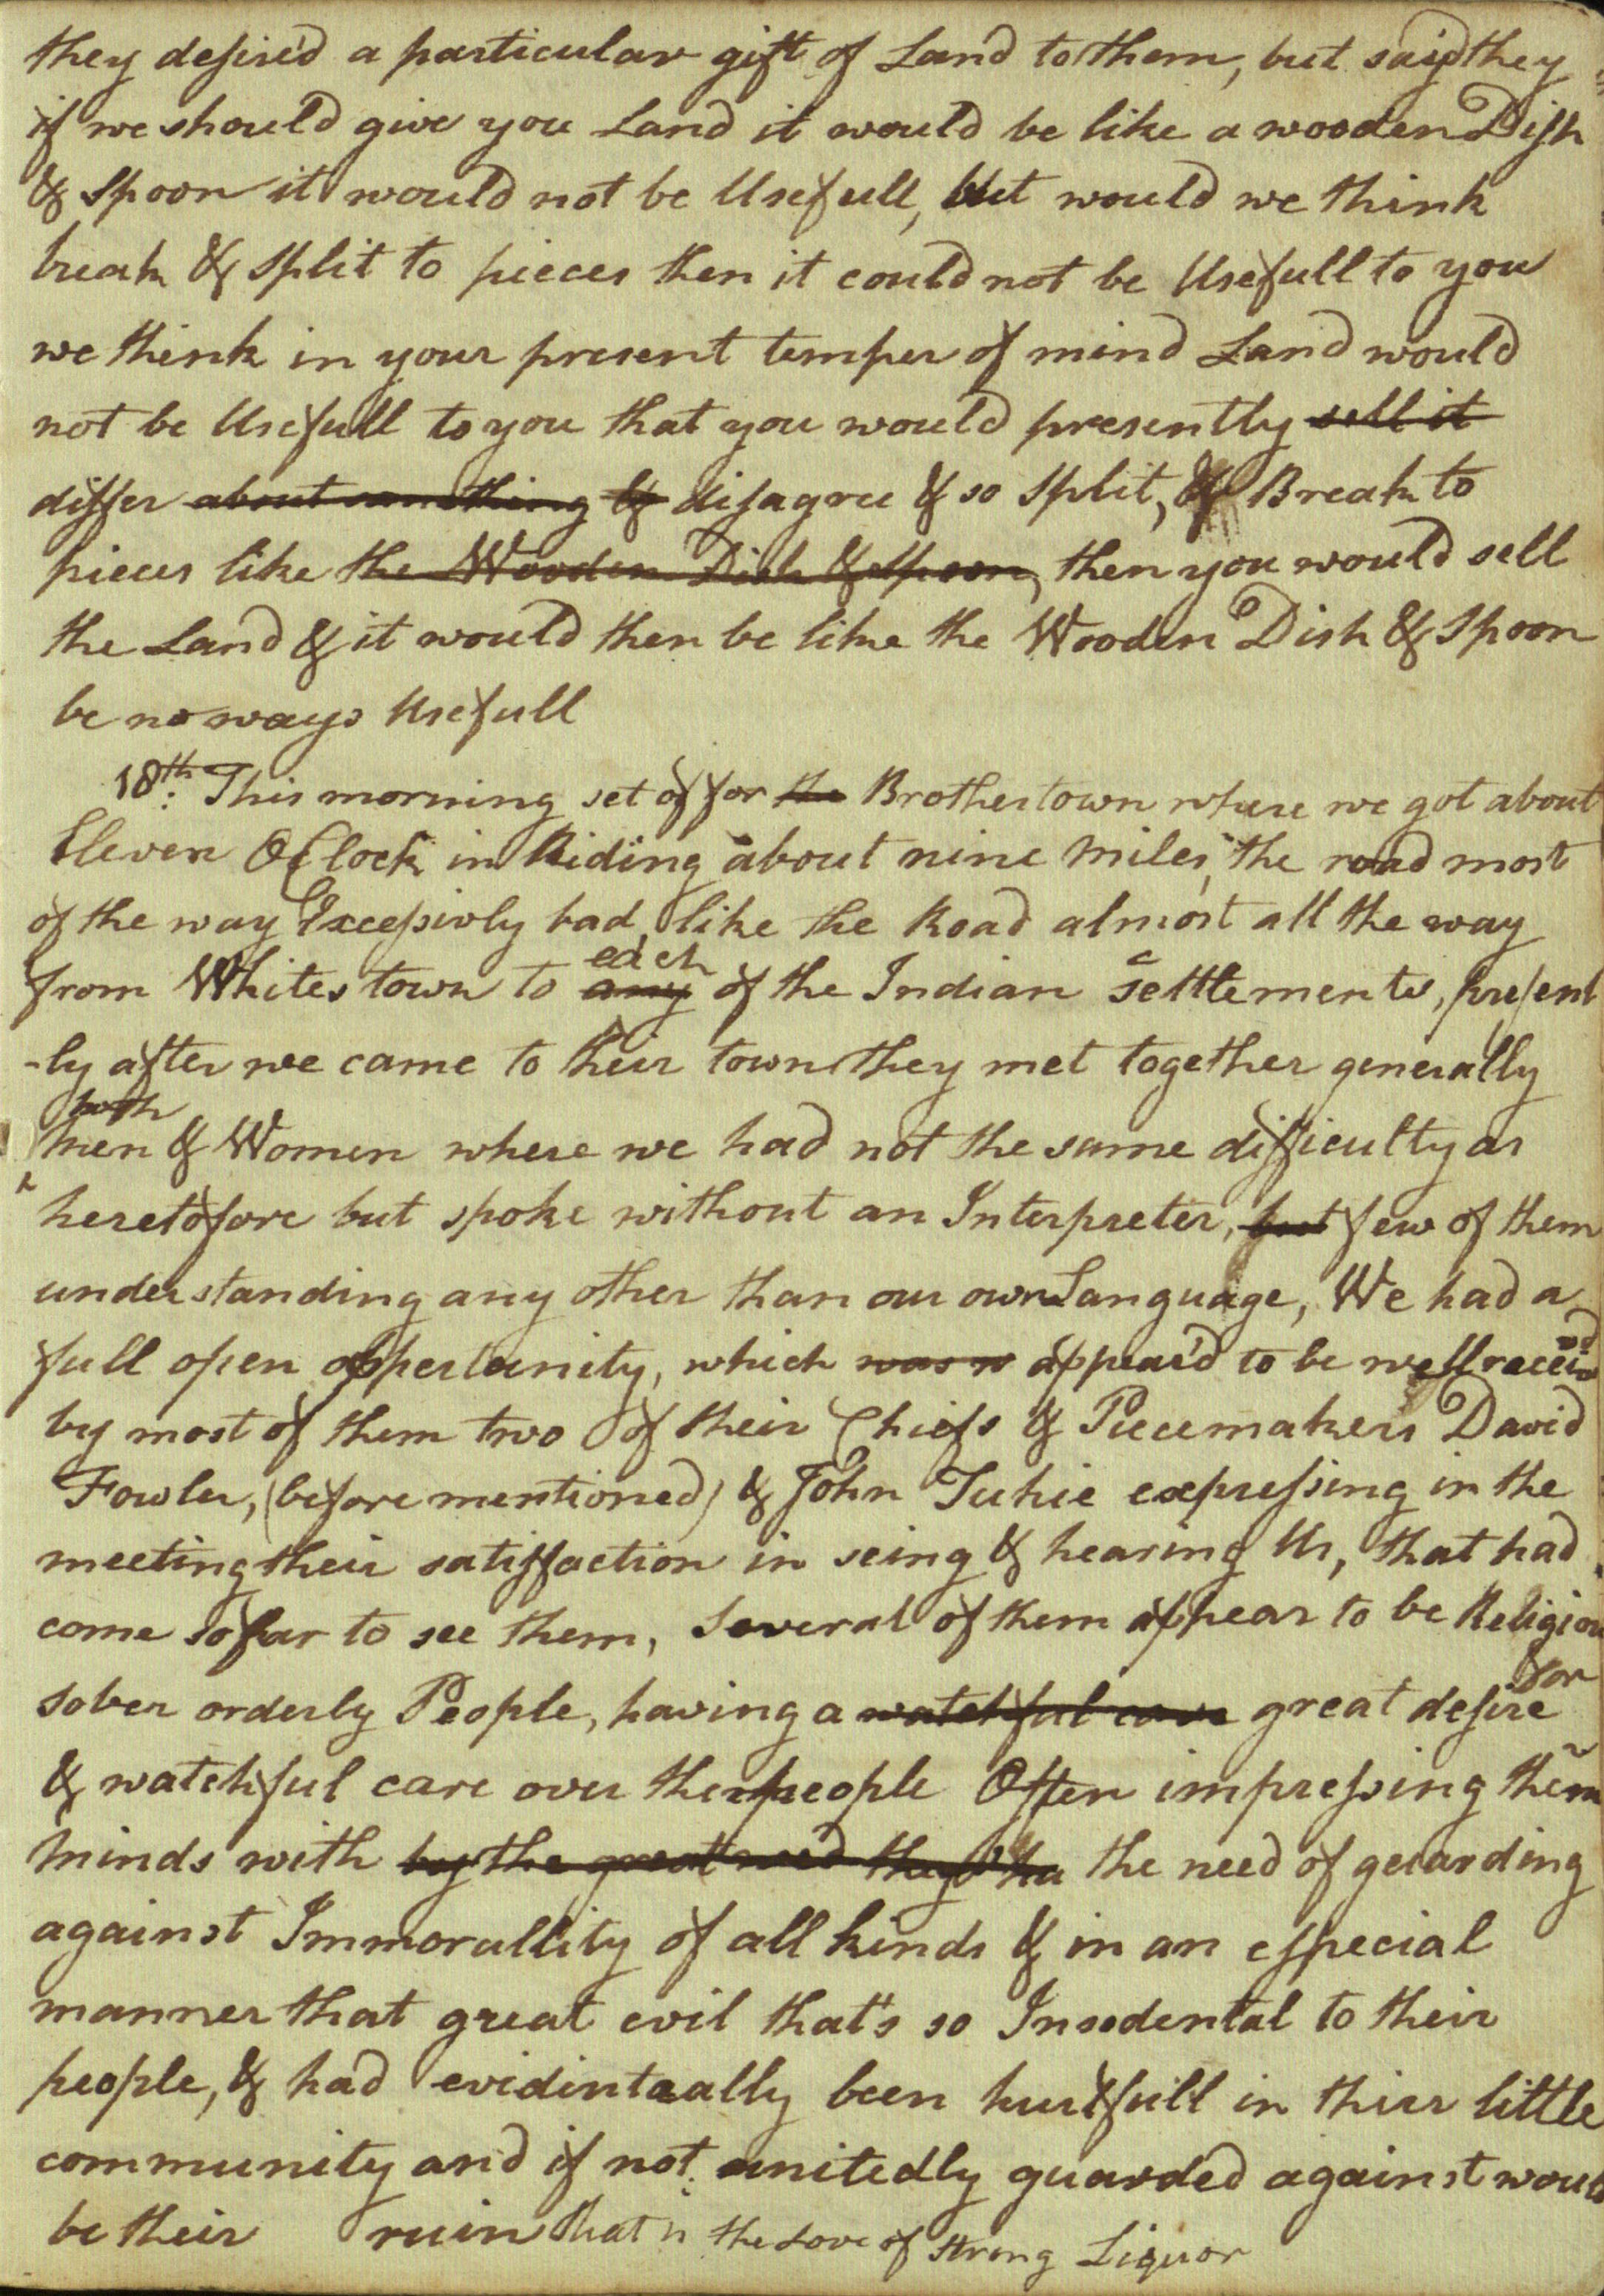 they desired a particular gift of Land to them, but said they
if we should give you Land it would be like a wooden Dish
& Spoon it would not be Usefull, but would we think
break & split to pieces then it could not be Usefull to you
we think in your present temper of mind Land would
not be Usefull to you that you would presently sell it
differ about something & disagree & so split, & Break to
pieces like the Wooden Dish & Spoon, then you would sell
the Land & it would then be like the Wooden Dish & Spoon
be no ways Usefull
18th: This morning set of for the Brothertown where we got about
Eleven OClock in Riding about nine Miles, the road most
of the way Excessivly bad, like the Road almost all the way
each
from Whitestown to any of the Indian settlements, present
-ly after we came to their town they met together generally
both
men & Women where we had not the same difficulty as
heretofore but spoke without an Interpreter, but few of them
understanding any other than our own Language, We had a
full open oppertunity, which was w appear'd to be well receivd
by most of them two of their Chiefs & Peecemakers David
Fowler, (before mentioned) & John Tuhie expressing in the
meeting their satisfaction in seing & hearing Us, that had
come so far to see them, Several of them appear to be Religiou
sober orderly People, having a watchful care great desire for
& watchful care over the people Often impressing them
minds with by the great need they the need of guarding
against Immorallity of all kinds & in an especial
manner that great evil that's so Insodental to their
people, & had evidintaally been hurtfull in thier little
community and if not unitedly guarded against would
be their ruin that is the Love of strong Liquor